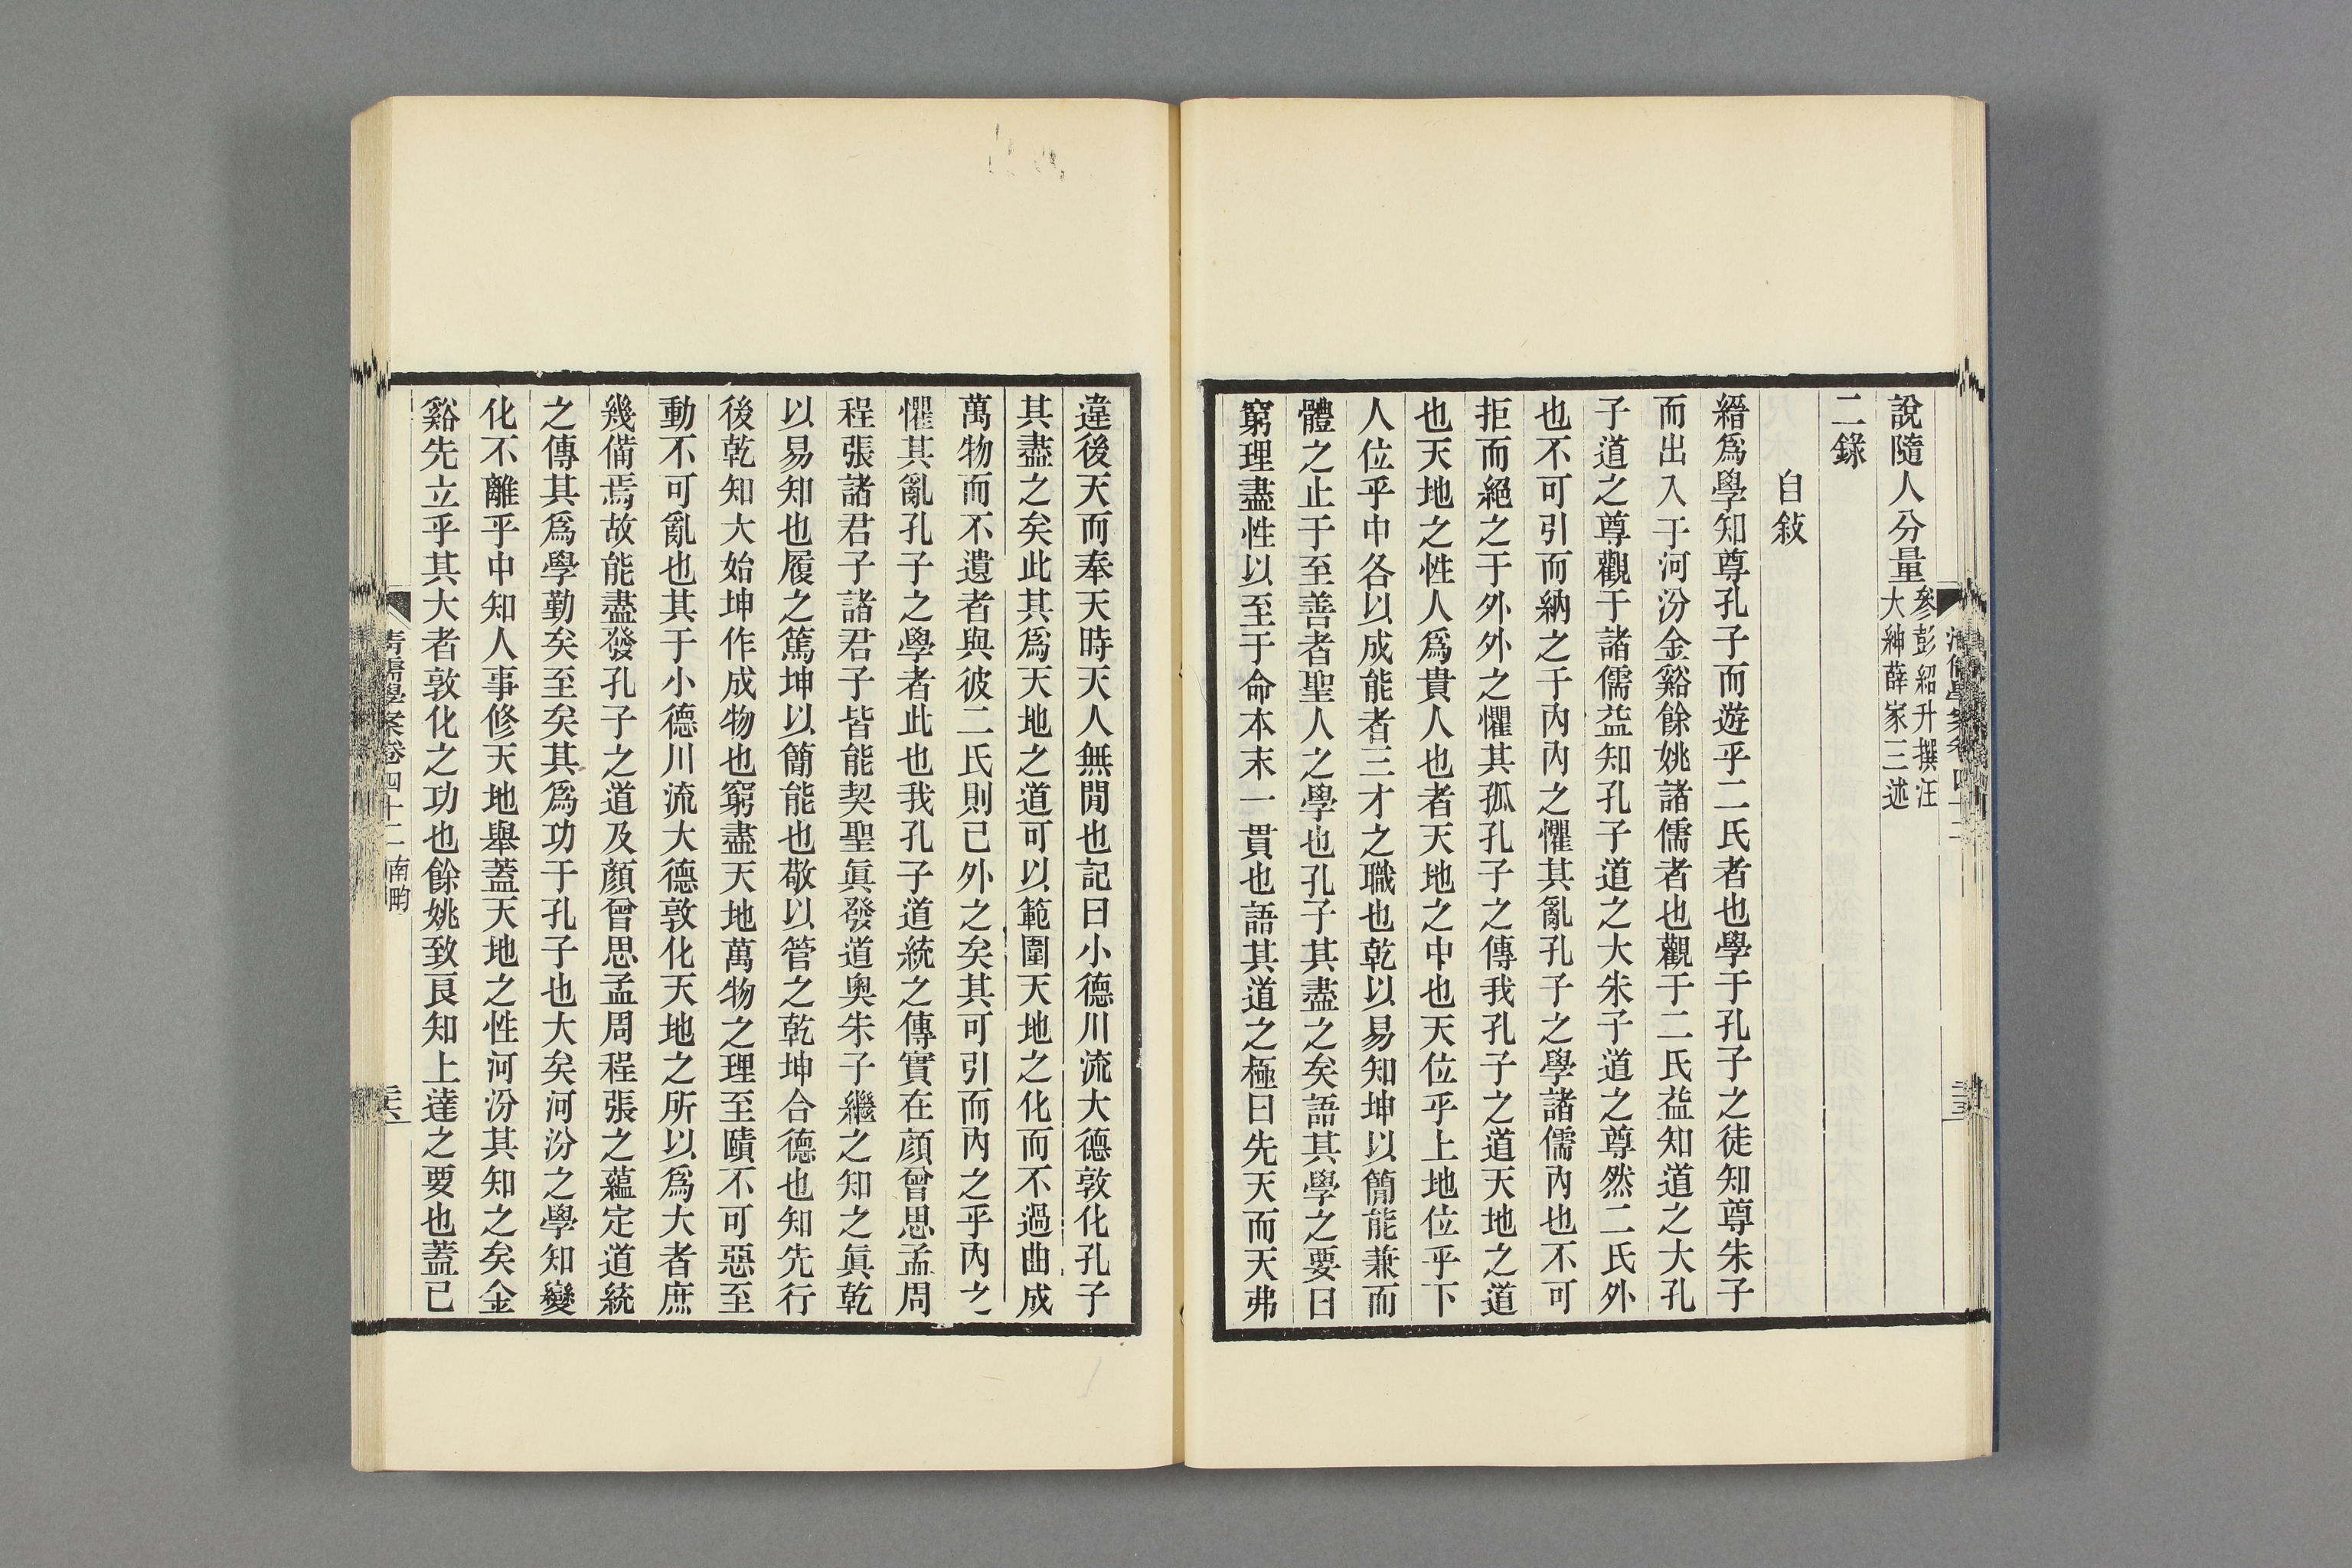 說隨人分量參彭紹升撰汪大紳薛家三述
二錄
自敍
縉爲學知尊孔子而遊乎二氏者也學于孔子之徒知尊朱子
而出入于河汾金谿餘姚諸儒者也觀于二氏益知道之大孔
子道之尊觀于諸儒益知孔子道之大朱子道之尊然二氏外
也不可引而納之于內內之懼其亂孔子之學諸儒內也不可
拒而絕之于外外之懼其孤孔子之傳我孔子之道天地之道
也天地之性人爲貴人也者天地之中也天位乎上地位乎下
人位乎中各以成能者三才之職也乾以易知坤以簡能兼而
體之止于至善者聖人之學也孔子其盡之矣語其學之要曰
窮理盡性以至于命本末一貫也語其道之極曰先天而天弗
違後天而奉天時天人無閒也記曰小德川流大德敦化孔子
其盡之矣此其爲天地之道可以範圍天地之化而不過曲成
萬物而不遺者與彼二氏則已外之矣其可引而內之乎內之
懼其亂孔子之學者此也我孔子道統之傳實在顏曾思孟周
程張諸君子諸君子皆能契聖眞發道奧朱子繼之知之眞乾
以易知也履之篤坤以簡能也敬以管之乾坤合德也知先行
後乾知大始坤作成物也窮盡天地萬物之理至賾不可惡至
動不可亂也其于小德川流大德敦化天地之所以爲大者庶
幾備焉故能盡發孔子之道及顏曾思孟周程張之蘊定道統
之傳其爲學勤矣至矣其爲功于孔子也大矣河汾之學知變
化不離乎中知人事修天地舉蓋天地之性河汾其知之矣金
谿先立乎其大者敦化之功也餘姚致良知上達之要也蓋已
清儒學案卷四十二 南畇